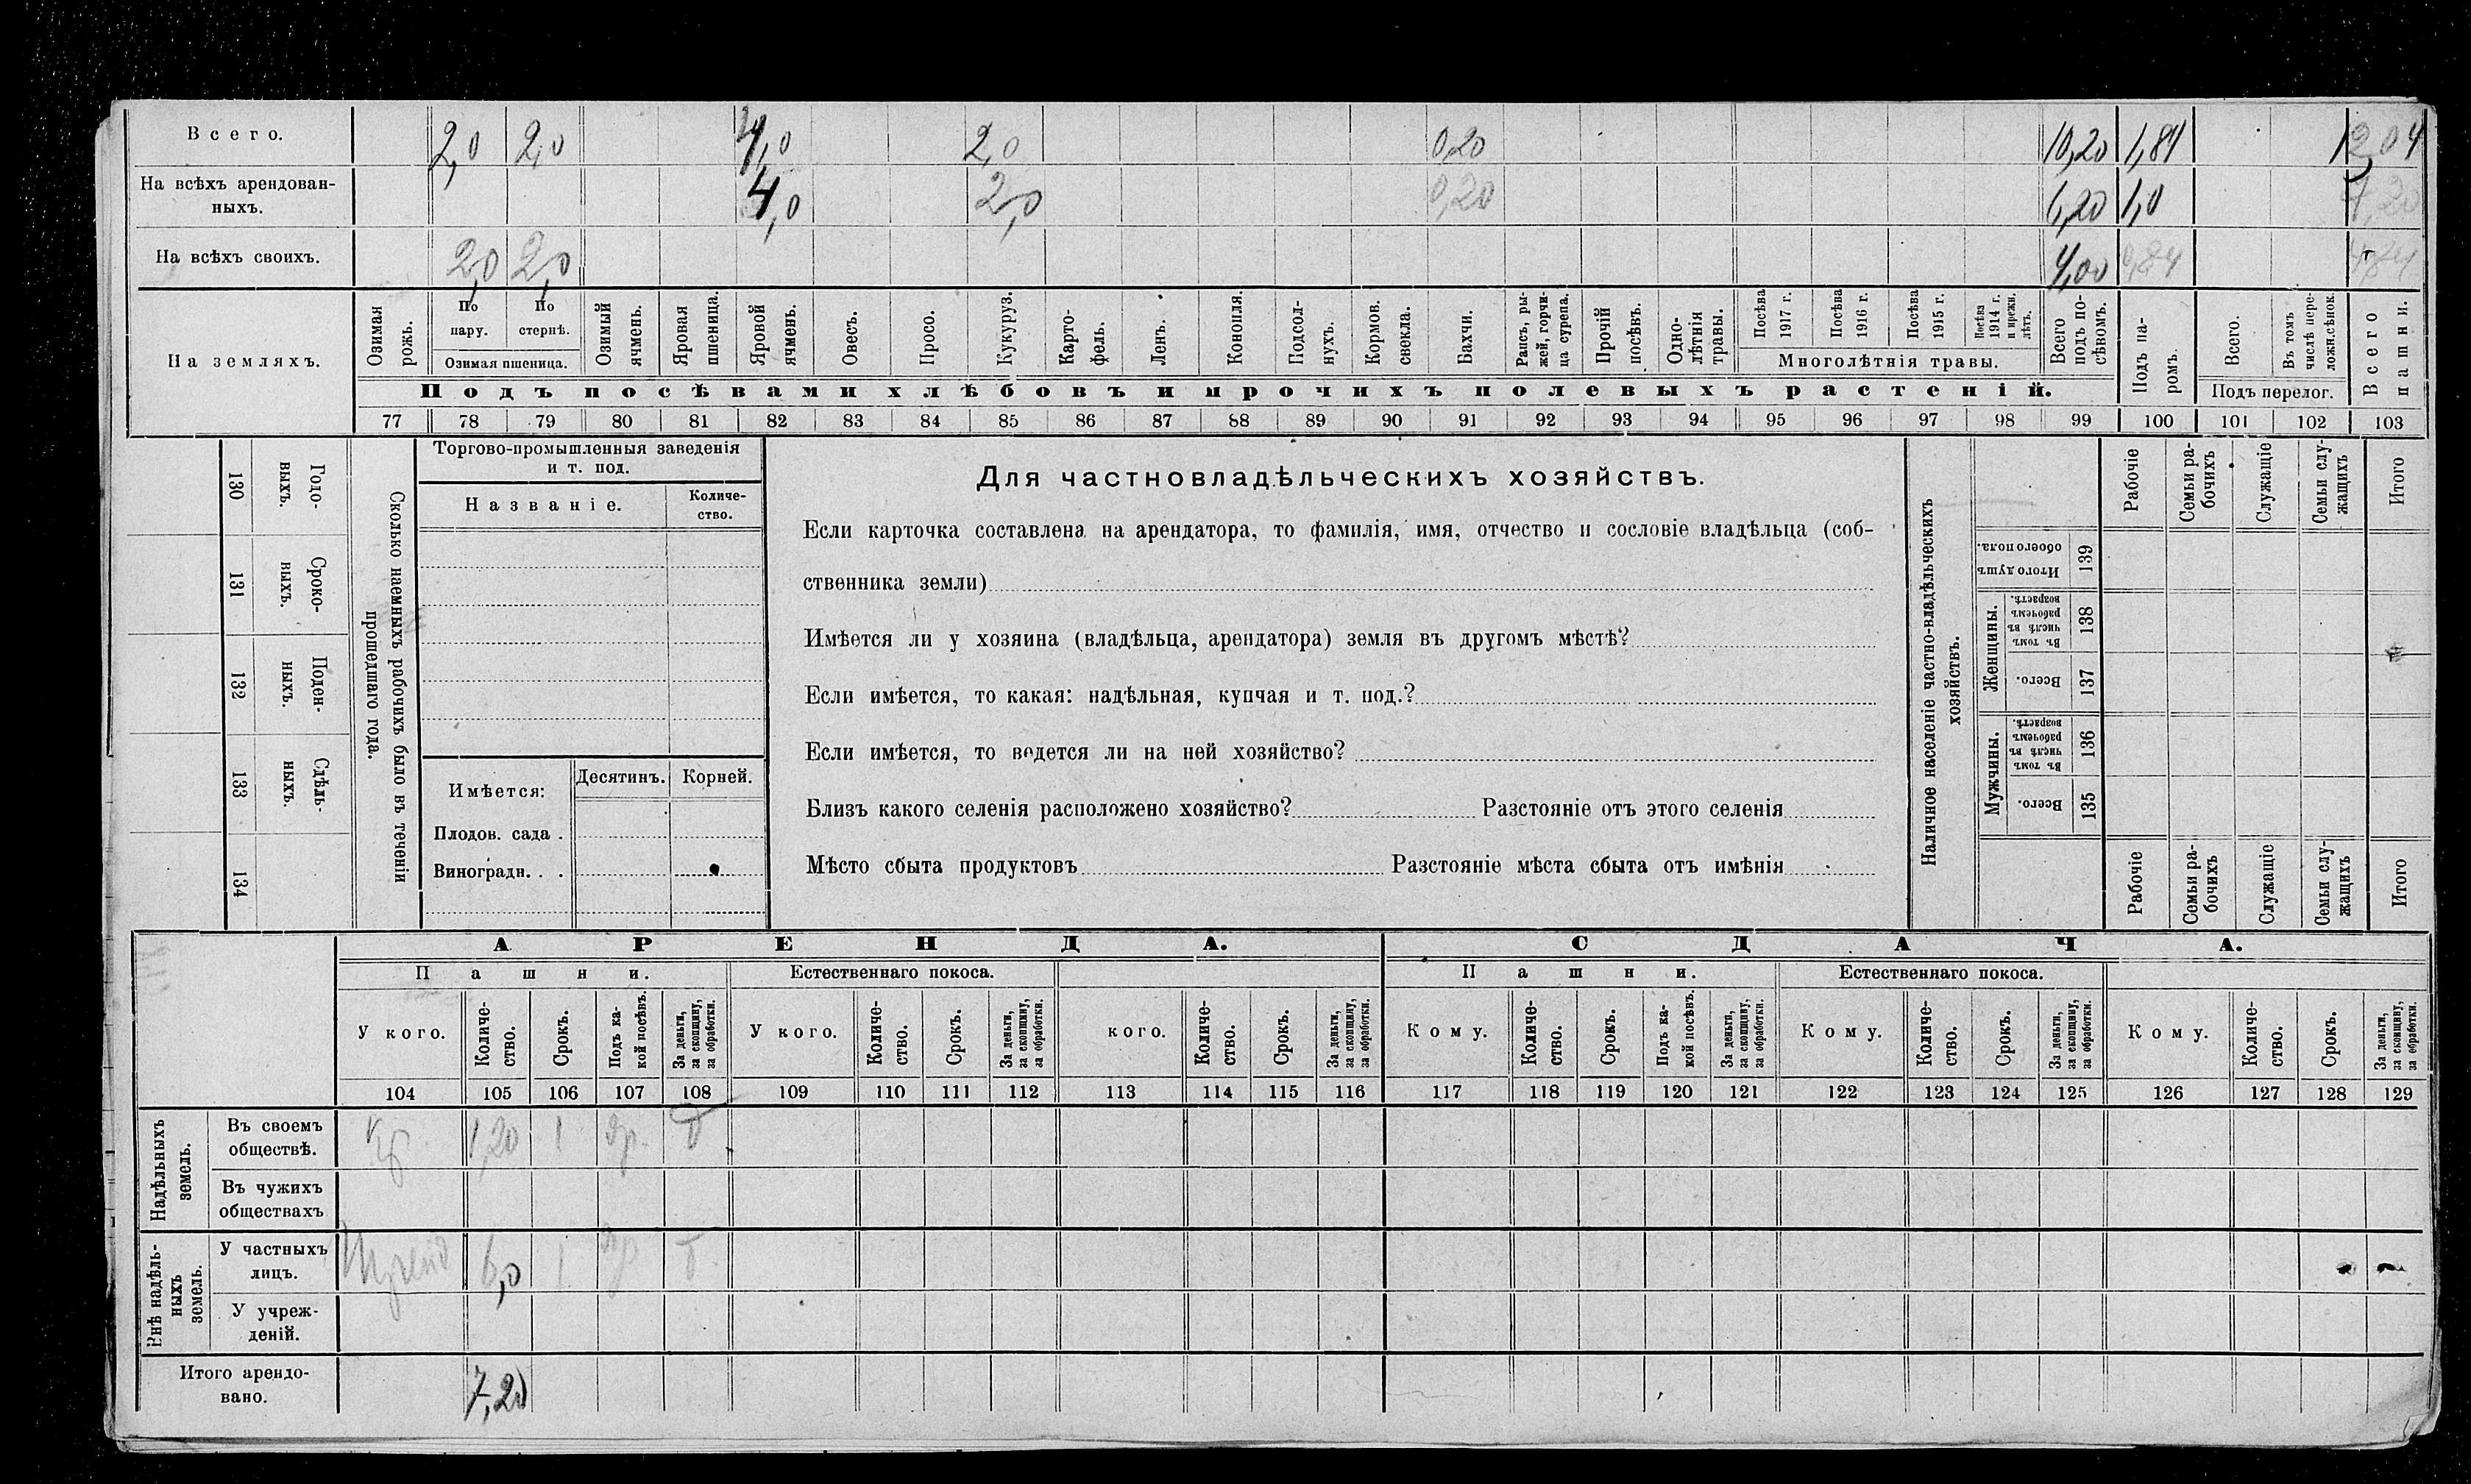 Всего. 2,0 2,0 4,0 2,0 0,20 10,20 1,84 12,04
На всѣхъ арендован-
ныхъ. 4,0 2,0 0,20 6,20 1,0 7,20
На всѣхъ своихъ. 2,0 2,0 4,00 0,84 4,84
На земляхъ.
Озимая рожь.
По пару.
По стернѣ.
Озимая пшеница.
Озимый ячмень.
Яровая пшеница.
Яровой ячмень.
Овесъ.
Просо.
Кукуруз.
Карто-
фель.
Ленъ.
Конопля.
Подсол-
нухъ.
Кормов. свекла.
Бахчи.
Рапсъ, ры-
жей, горчи-
ца сурепа.
Прочій посѣвъ.
Одно-
лѣтнія травы.
Посѣва 1917 г.
Посѣва 1916 г.
Посѣва 1915 г.
Посѣва 1914 г. и прежн. лѣтъ.
Многолѣтнія травы.
Всего подъ по-
сѣвомъ.
Подъ па-
ромъ.
Всего.
Въ томъ числѣ пере-
ложн.сѣнок.
Подъ перелог.
Всего пашни.
Подъ посѣвами хлѣбовъ и прочихъ полевыхъ растеній.
77 78 79 80 81 82 83 84 85 86 87 88 89 90 91 92 93 94 95 96 97 98 99 100 101 102 103
130 Годо-
выхъ.
131 Сроко-
ныхъ.
132 Поден-
ныхъ.
133 Сдѣль-
ныхъ.
134
Сколько наемныхъ рабочихъ было въ теченіи
прошедшаго года.
Торгово-промышленныя заведенія
и т. под.
Названіе.
Количе-
ство.
Имѣется:
Десятинъ. Корней.
Плодов. сада .
Виноградн. . .
Для частновладѣльческихъ хозяйствъ.
Если карточка составлена на арендатора, то фамилія, имя, отчество и сословіе владѣльца (соб-
ственника земли)
Имѣется ли у хозяина (владѣльца, арендатора) земля въ другомъ мѣстѣ?
Если имѣется, то какая: надѣльная, купчая и т. под.?
Если имѣется, то ведется ли на ней хозяйство?
Близъ какого селенія расположено хозяйство? Разстояніе отъ этого селенія
Мѣсто сбыта продуктовъ Разстояніе мѣста сбыта отъ имѣнія
Наличное населеніе частно-владѣльческихъ
хозяйствъ.
Рабочіе
Семьи ра-
бочихъ
Служащіе
Семьи слу-
жащихъ
Итого
Итого душъ обоего пола. 139
Женщины.
Въ томъ числѣ въ рабочемъ возрастѣ. 138
Всего. 137
Мужчины.
Въ томъ числѣ въ рабочемъ возрастѣ. 136
Всего. 135
Рабочіе
Семьи ра-
бочихъ
Служащіе
Семьи слу-
жащихъ
Итого
АРЕНДА. СДАЧА.
Пашни. Естественнаго покоса. Пашни. Естественнаго покоса.
У кого.
Количе-
ство.
Срокъ.
Подъ ка-
кой посѣвъ.
За деньги, за скопщину, за обработки.
У кого.
Количе-
ство.
Срокъ.
За деньги, за скопщину, за обработки.
кого.
Количе-
ство.
Срокъ.
За деньги, за скопщину, за обработки.
Кому.
Количе-
ство.
Срокъ.
Подъ ка-
кой посѣвъ.
За деньги, за скопщину, за обработки.
Кому.
Количе-
ство.
Срокъ.
За деньги, за скопщину, за обработки.
Кому.
Количе-
ство.
Срокъ.
За деньги, за скопщину, за обработки.
104 105 106 107 108 109 110 111 112 113 114 115 116 117 118 119 120 121 122 123 124 125 126 127 128 129
Надѣльныхъ
земель.
Въ своемъ
обществѣ. 1,20 1 яр.
Въ чужихъ
обществахъ
Внѣ надѣль-
ныхъ
земель.
У частныхъ
лицъ. 6,0 1 яр
У учреж-
деній.
Итого арендо-
вано. 7,20